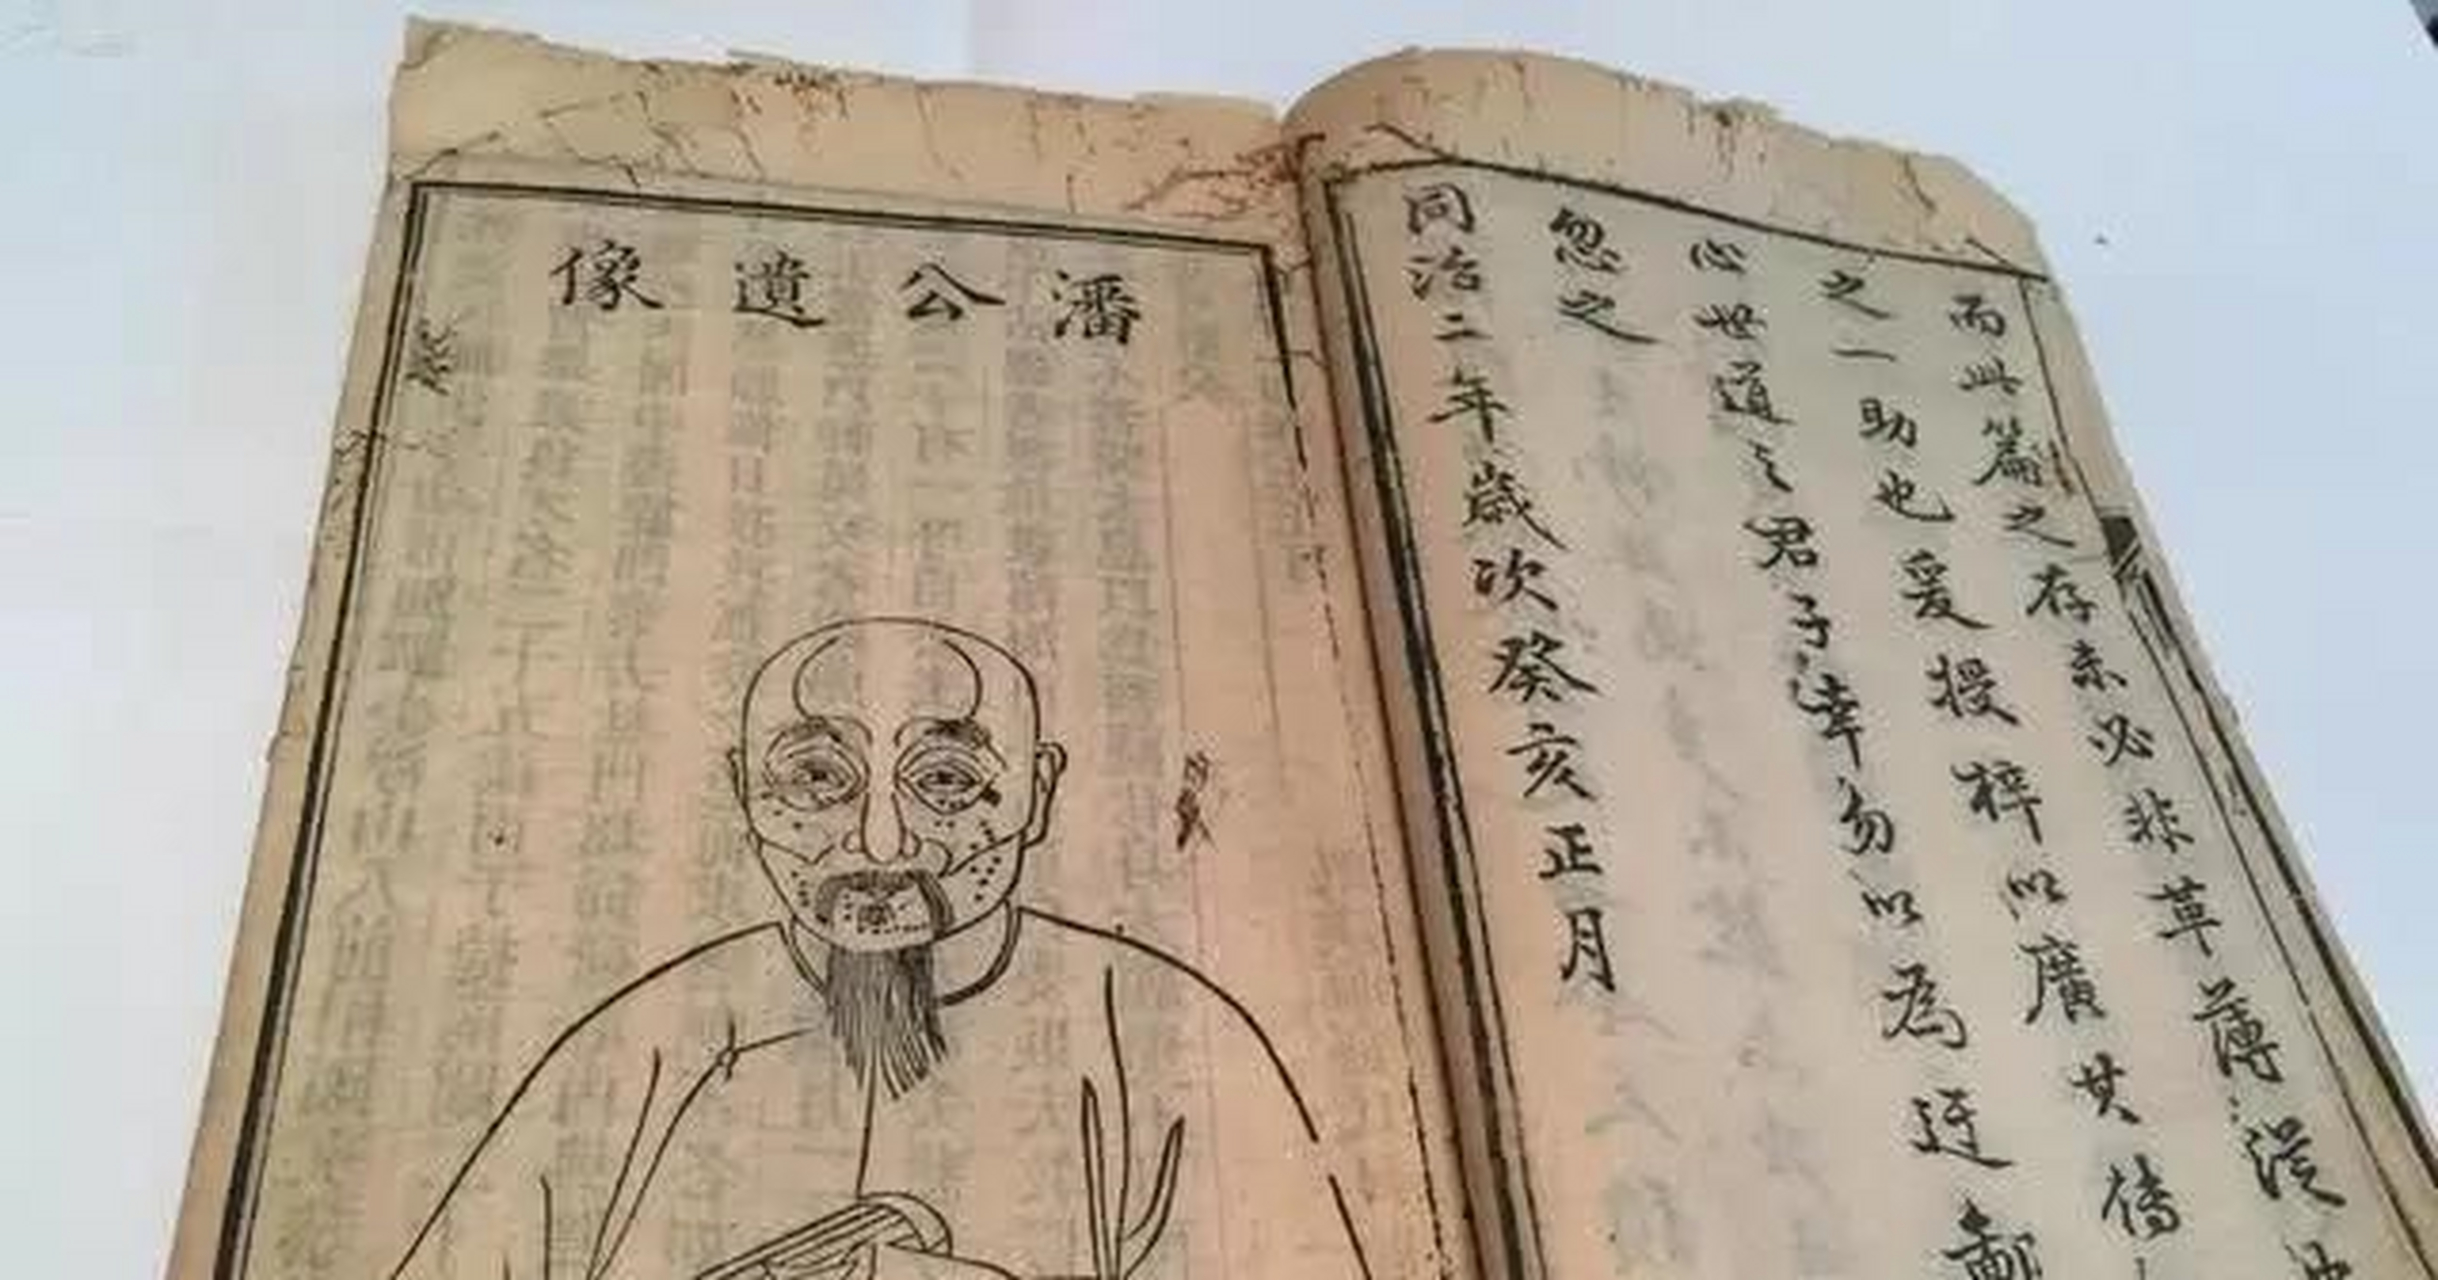 而此篇之存未必非革薄從
之一助也爰授梓以廣其傳
心世道之君子幸勿以為迂鄙
忽之
同治二年歲次癸亥正月
潘公遺像